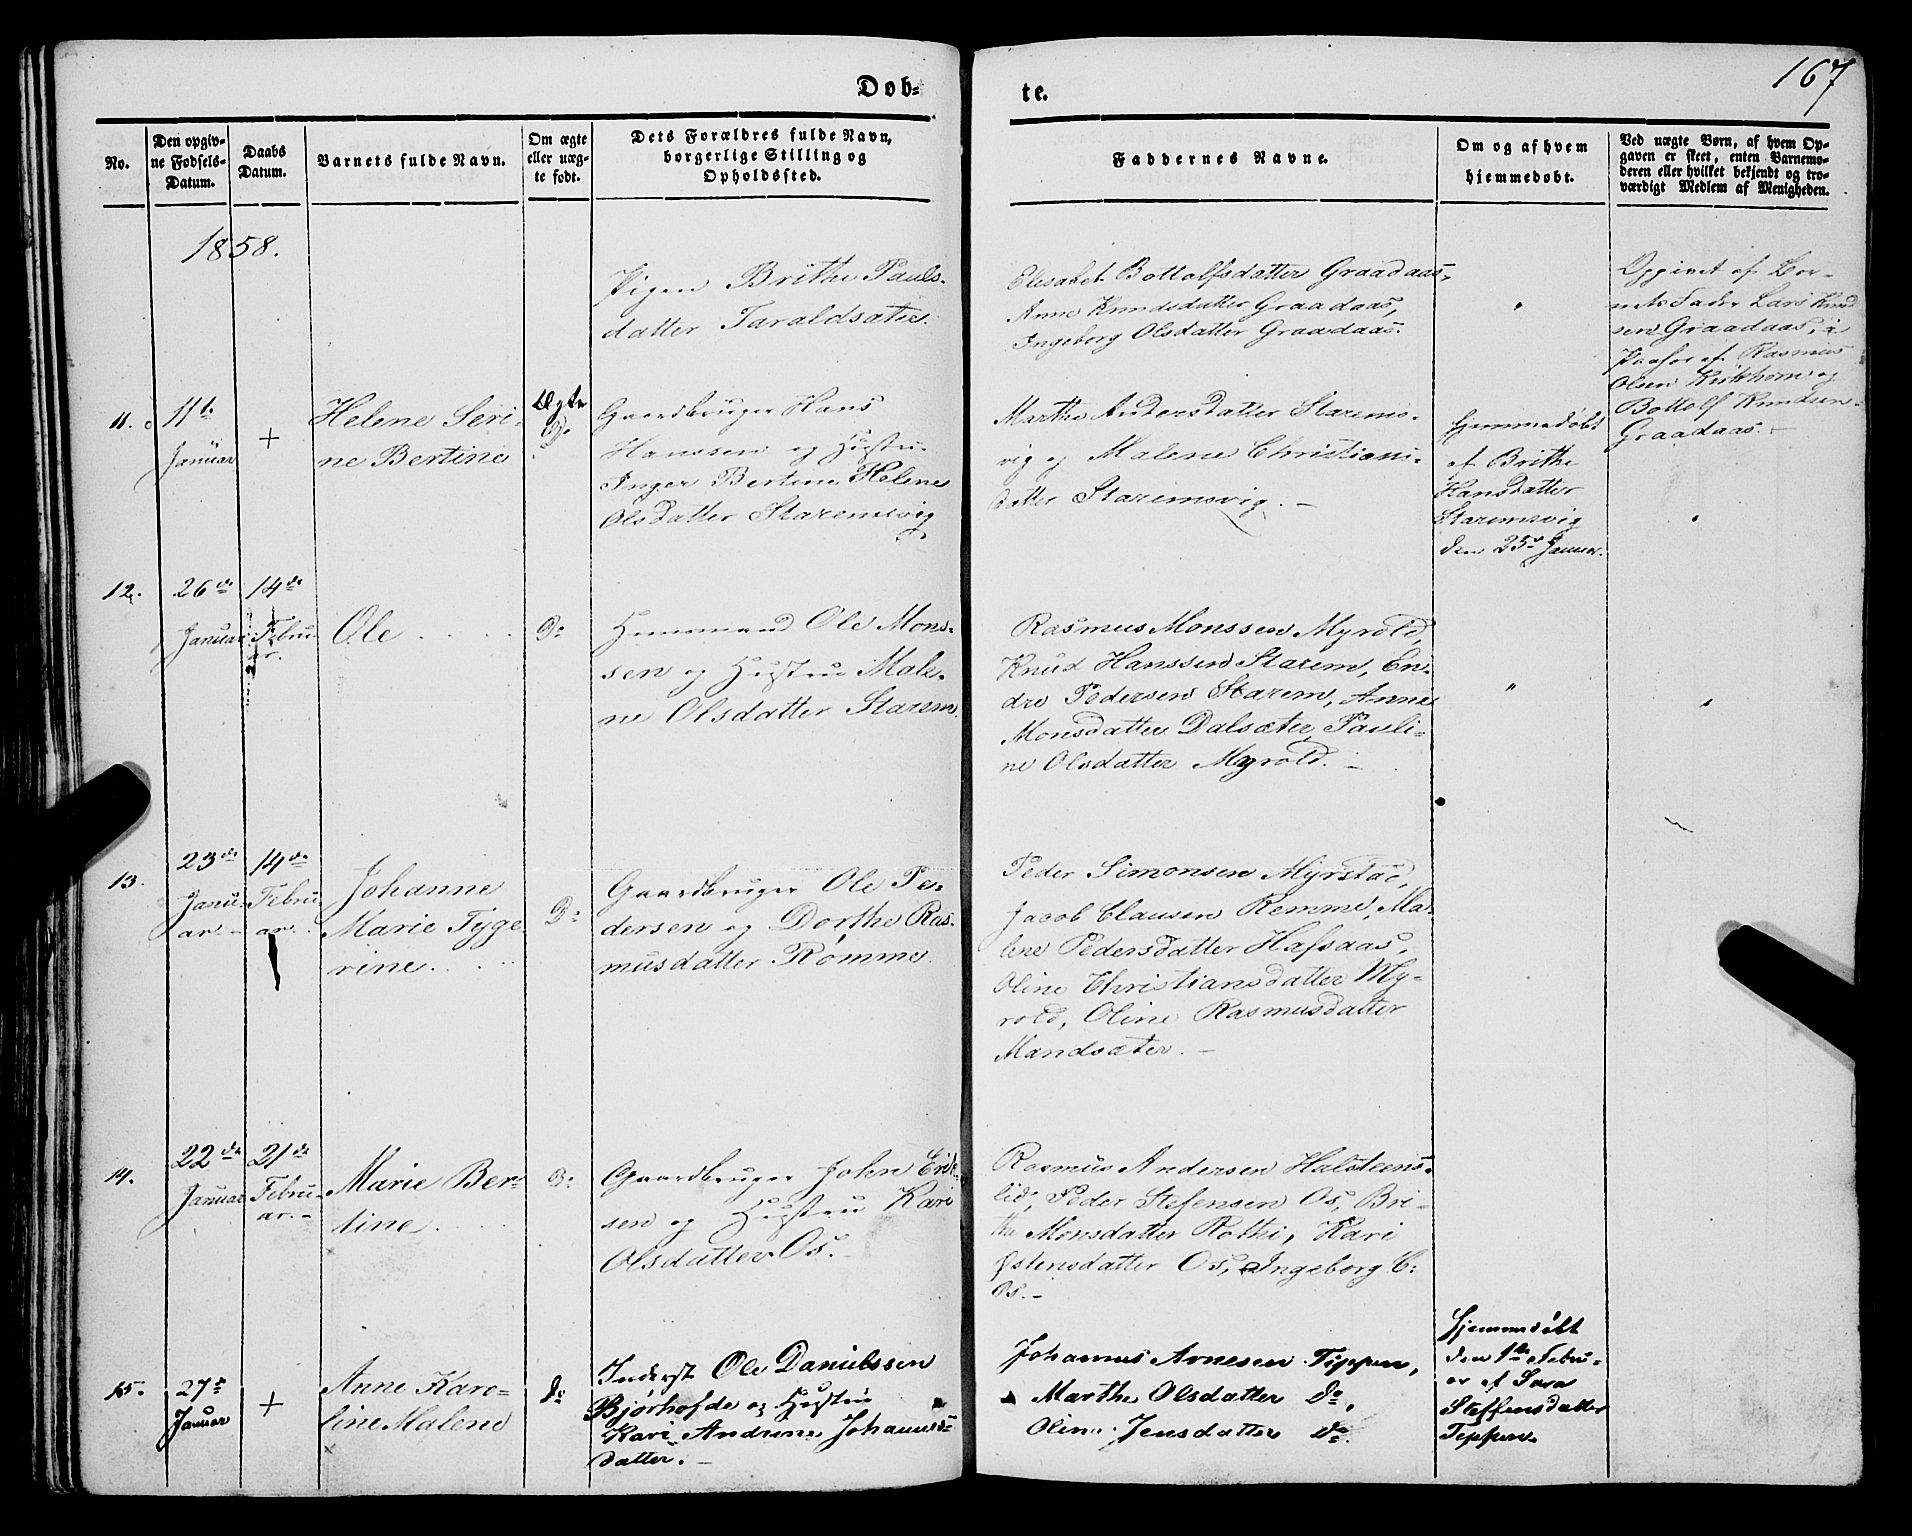 167
Døb-
te.
No.
Den opgiv-
ne Fødsels-
Datum.
Daabs
Datum.
Barnets fulde Navn.
Om ægte
eller uæg-
te født.
Dets Forældres fulde Navn,
borgerlige Stilling og
Opholdssted.
Faddernes Navne.
Om og af hvem
hjemmedøbt.
Ved uægte Børn, af hvem Op-
gaven er skeet, enten Barnemo-
deren eller hvilket bekjendt og tro-
værdigt Medlem af Menigheden.
1858.
Pigen Brithe Pauls-
datter Taraldsæter.
Elisabet Bottolfsdatter Graadaas,
Anne Knudsdatter Graadaas,
Ingeborg Olsdatter Graadaas.
"
Opgivet af Bar-
nets Fader Lars Knud
sen Graadaas, i
Paahør af Rasmus
Olsen Kirkhorn og
Bottolf Knudsen
Graadaas. -
11.
11te
Januar
+
Helene Seri-
ne Bertine
Ægte
D:
Gaardbruger Hans
Hanssen og Hustru
Inger Bertine Helene
Olsdatter Staremsvig
Marthe Andersdatter Starems-
vig og Malene Christians-
datter Staremsvig. -
Hjemmedøbt
af Brithe
Hansdatter
Staremsvig
den 23de Januar.
"
12.
26de
Januar
14de
Febru-
ar.
Ole
D:
Huusmand Ole Mons-
sen og Hustru Male-
ne Olsdatter Starem.
Rasmus Monssen Myrold,
Knud Hanssen Starem, En-
dre Pedersen Starem, Anne
Monsdatter Dalsæter, Pauli-
ne Olsdatter Myrold. -
"
"
13.
23de
Janu-
ar. -
14de
Febru-
ar.
Johanne
Marie Tyge
rine.
D:
Gaardbruger Ole Pe-
dersen og Dorthe Ras-
musdatter Rømme.
Peder Simonsen Myrstad,
Jacob Clausen Remme, Ma-
lene Pedersdatter Hafsaas,
Oline Christiansdatter My-
rold, Oline Rasmusdatter
Mandsæter. -
14.
22de
Januar
21de
Febru-
ar. -
Marie Ber-
tine
D:
Gaardbruger John Erik-
sen og Hustru Kari
Olsdatter Os. -
Rasmus Andersen Halsteens-
lid, Peder Stefensen Os, Bri-
the Monsdatter Rothi, Kari
Østensdatter Os, Ingeborg C:
Os. -
15.
27de
Januar
+
Anne Karo-
line Malene
do
Inderst Ole Danielssen
Bjørhofde og Hustru
Kari Andrine Johannes-
datter. -
Johannes Arnesen Tippen,
Marthe Olsdatter do,
Oline Jensdatter do.
Hjemmedøbt
den 1te Febru-
ar af Sara
Steffensdatter
Teppen.